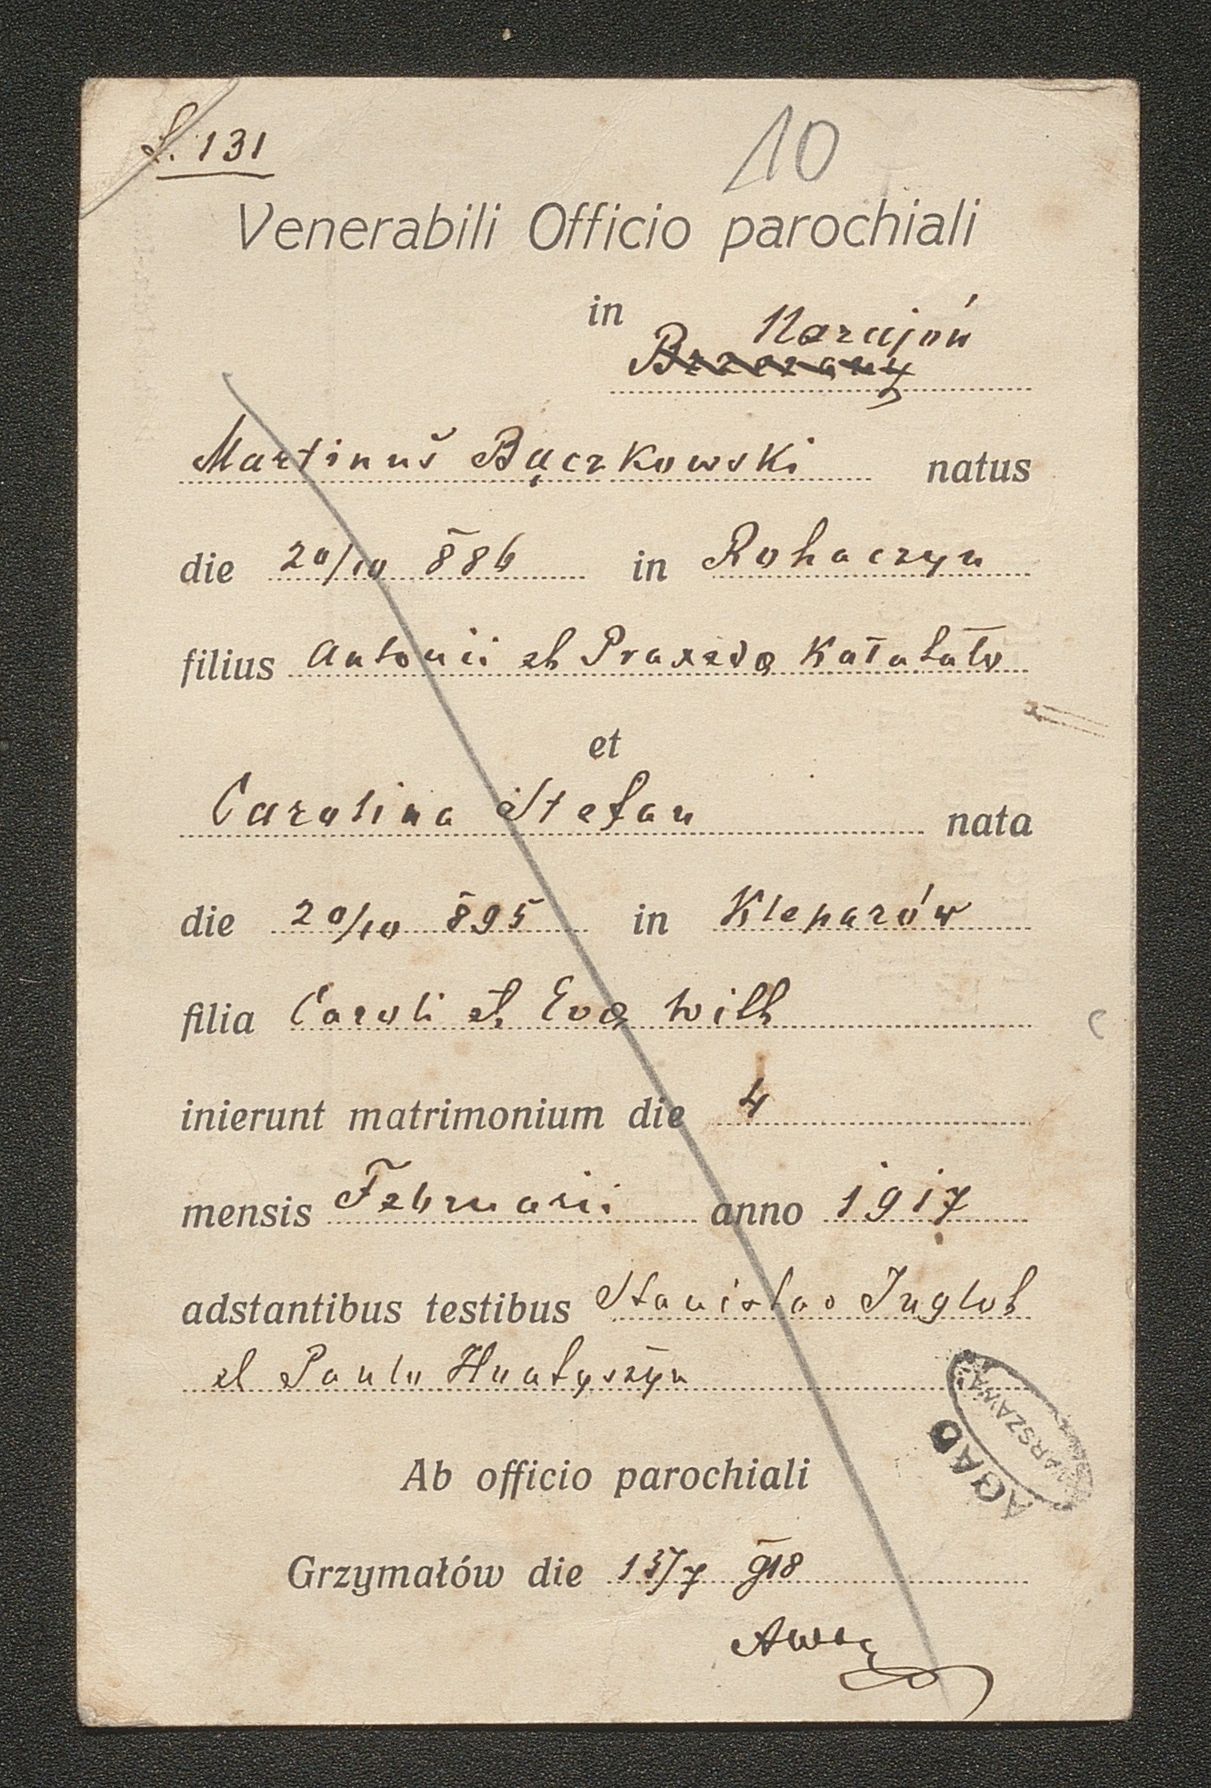 L. 131
10
Venerabili Officio parochiali
in Narajów
Brzeżany
Martinus Bączkowski natus
die 20/10 886 in Rohaczyn
filius Antonii et Praxedæ
et
Carolina Stefan nata
die 20/10 895 in Kleparów
filia Caroli et Evæ Wilk
inierunt matrimonium die 4
mensis Februarii anno 1917
adstantibus testibus Stanislao
et Paulo Hnatyszyn
AGAD
WARSZAWA
Ab officio parochiali
Grzymałów die 15/7 918